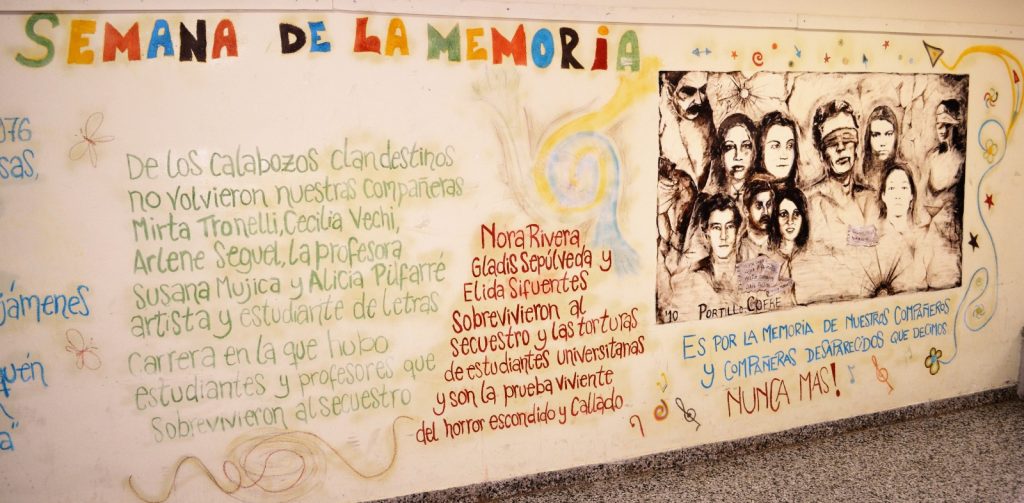 SEMANA DE LA MEMORIA
976
sas,
jámenes
uén
a"
De los calabozos clandestinos
no volvieron nuestras compañeras
Mirta Tronelli, Cecilia Vechi,
Arlene Seguel, la profesora
Susana Mujica y Alicia Pifarré
artista y estudiante de letras
Carrera en la que hubo
estudiantes y profesores que
Sobrevivieron al secuestro
Nora Rivera,
Gladis Sepúlveda y
Elida Sifuentes
Sobrevivieron al
secuestro y las torturas
de estudiantes universitarias
y son la prueba viviente
del horror escondido y Callado
'10 PORTILLO COFRE
ES POR LA MEMORIA DE NUESTROS COMPAÑEROS
Y COMPAÑERAS DESAPARECIDOS QUE DECIMOS
NUNCA MAS!